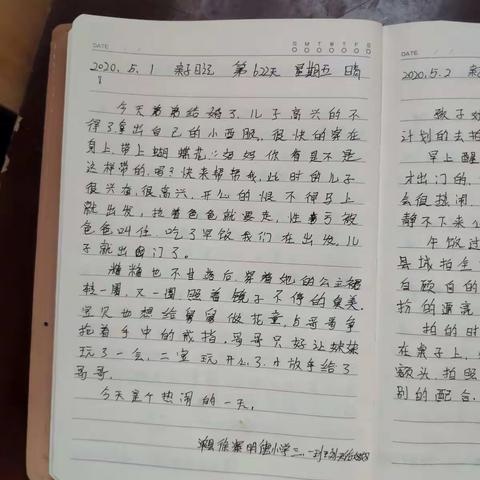 DATE
S M T W T F S
2020.5.1 亲子日记 第622天 星期五 晴
今天弟弟结婚了,儿子高兴的不
得了拿出自己的小西服,很快的穿在
身上,带上蝴蝶花,妈妈你看是不是
这样带的,吗?快来帮帮我,此时的儿子
很兴奋,很高兴,开心的恨不得马上
就出发,拉着爸爸就要走,性
爸爸叫住,吃了早饭我们在出发,儿
子就出门了。
也不甘落后,穿着她的公主裙
转一圈,又一圈照着镜子不停的臭美,
宝贝也想给舅舅做花童,与哥哥争
抢着手中的戒指,哥哥只好让妹妹
玩了一会,二宝玩开心了,才放手给了
哥哥。
今天是个热闹的一天。
明德小学三.一班
DATE
2020.5.2 亲
孩子
计划的去拍
早上醒
才出门的,
会很拥闹,
静不下来
午饭过
县城拍全
自顾自的
扮的漂亮
拍的时
在桌子上,
额头,拍照
别的配合,